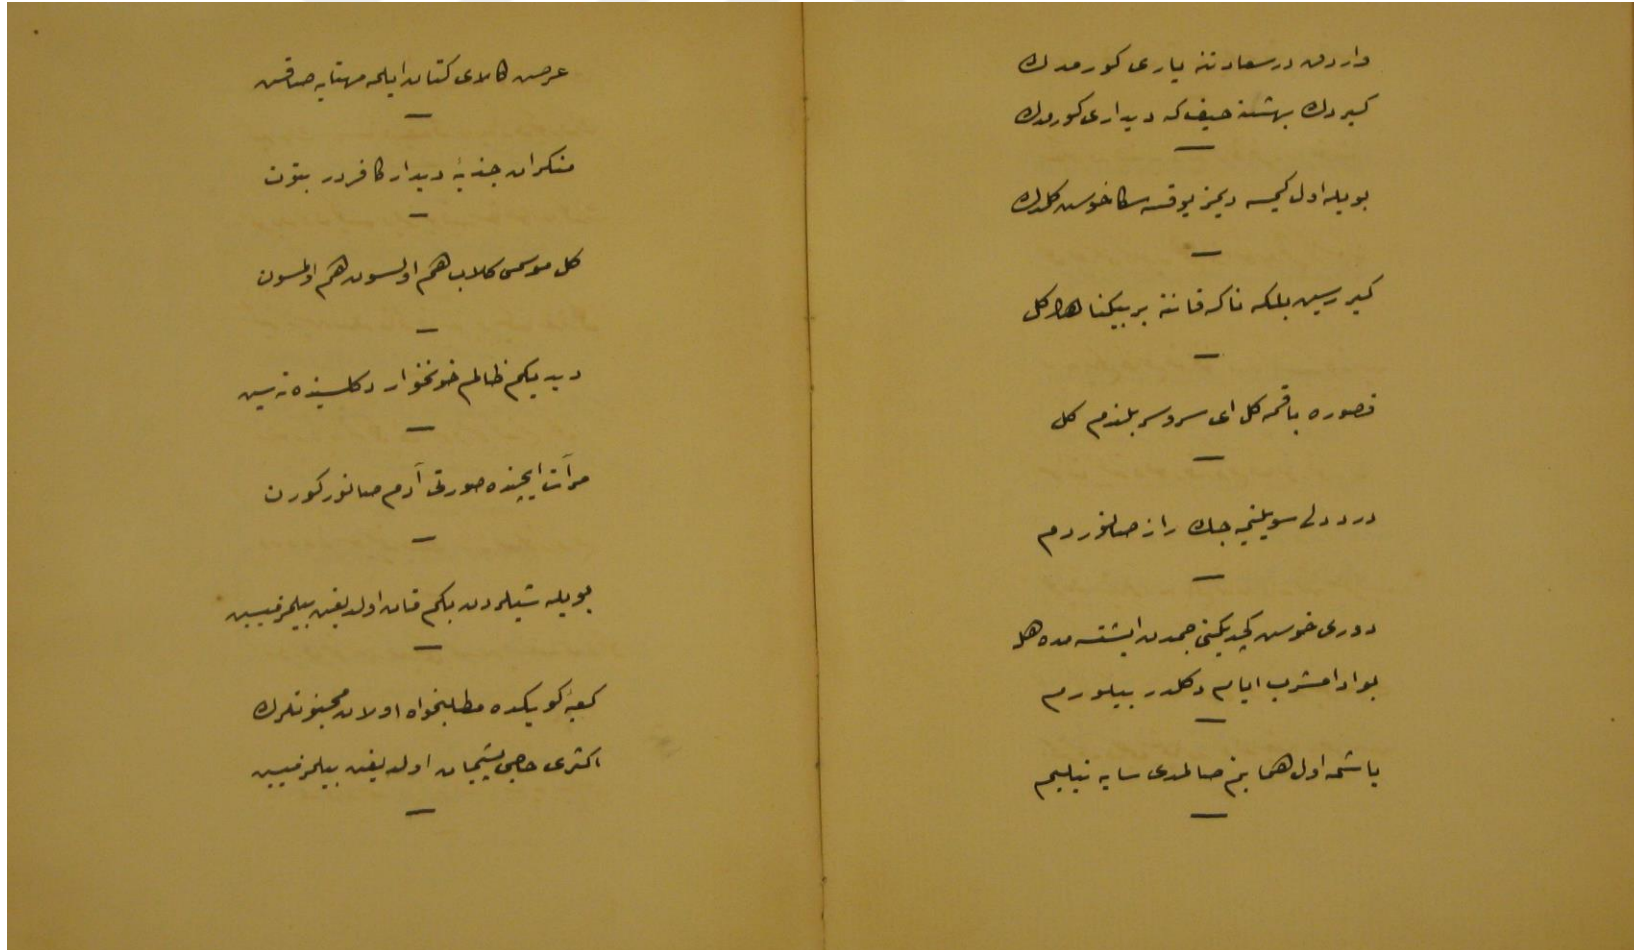 واردق در سعادتنه یاری کورمدك
کیردك بهشته حیف که دیداری کورمدك
بویله اول کیمسه دیمز یوقسه سکا خوس کلدك
کیررسین بلکه ناکه قاننه بر بیکناهك کل
قصوره باقمه کل ای سرو سر بلندم کل
درد دلی سویلنیه جك راز صانوردم
دوری خوس کچدیکنی جمدن ایشتسه مده هله
بو ادا مشرب ایام دکلدر بیلورم
یاشمه اول هما بنم صالمدی سایه نیلیم
عرض کالای کتان ایلمه مهتابه صاقین
منکران جذبهٔ دیدار کافردر بتون
کل موسمی کلاب هم اولسون هم اولمسون
دیدیکم ظالم خونخوار دکلسینده نه سین
مرآت ایچنده صورتی آدم صانور کورن
بویله شیلردن بکم قان اولدیغن بیلمزمیسین
کعبهٔ کویکده مطلبخواه اولان محجوبلرك
اکثری حاجی پشیمان اولدیغن بیلمزمیسین